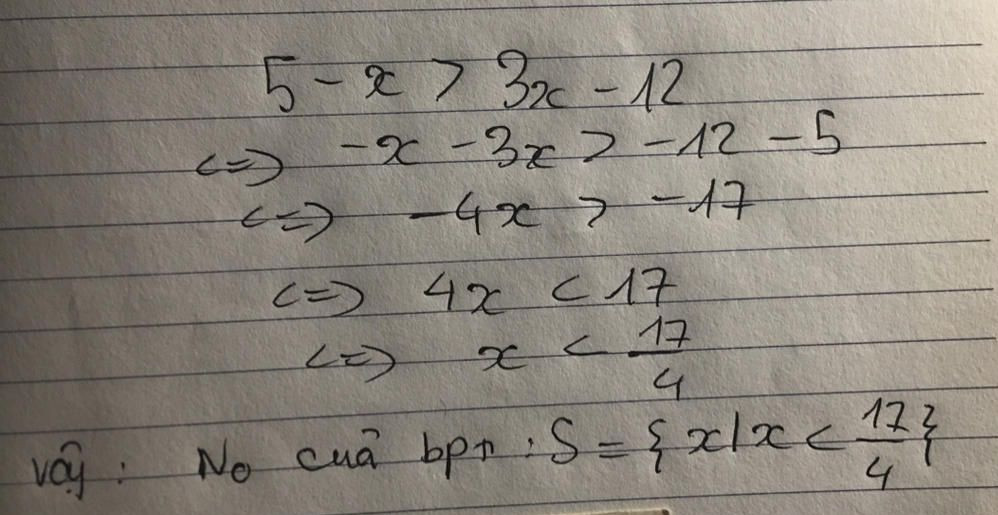 5 - x > 3x - 12
<=> -x - 3x > -12 - 5
<=> -4x > -17
<=> 4x < 17
<=> x < 17/4
vậy : No cuả bpt : S = { x | x < 17/4 }